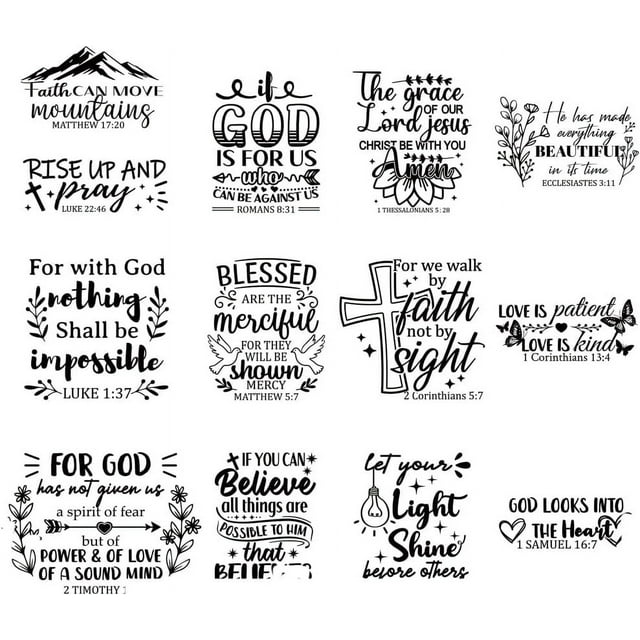 Faith CAN MOVE
mountains
MATTHEW 17:20
RISE UP AND
pray
LUKE 22:46
if
GOD
IS FOR US
who
CAN BE AGAINST US
ROMANS 8:31
The grace
OF OUR
Lord jesus
CHRIST BE WITH YOU
Amen
1 THESSALONIANS 5:28
He has made
everything
BEAUTIFUL
in its time
ECCLESIASTES 3:11
For with God
nothing
Shall be
impossible
LUKE 1:37
BLESSED
ARE THE
merciful
FOR THEY
WILL BE
shown
MERCY
MATTHEW 5:7
For we walk
by
faith
not by
sight
2 Corinthians 5:7
LOVE IS patient
LOVE IS kind
1 Corinthians 13:4
FOR GOD
has not given us
a spirit of fear
but of
POWER & OF LOVE
OF A SOUND MIND
2 TIMOTHY 1
IF YOU CAN
Believe
all things are
POSSIBLE TO HIM
that
BELIEVES
let your
Light
Shine
before others
GOD LOOKS INTO
THE Heart
1 SAMUEL 16:7